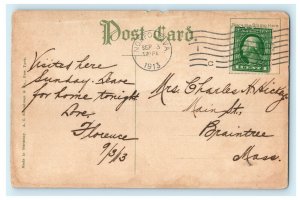 Post Card.
SEP 3
1913
Visited here
Sunday. Leave
for home tonight
Love,
Florence
9/3/13
Mrs. Charles H.
Main St,
Braintree
Mass.
Made in Germany